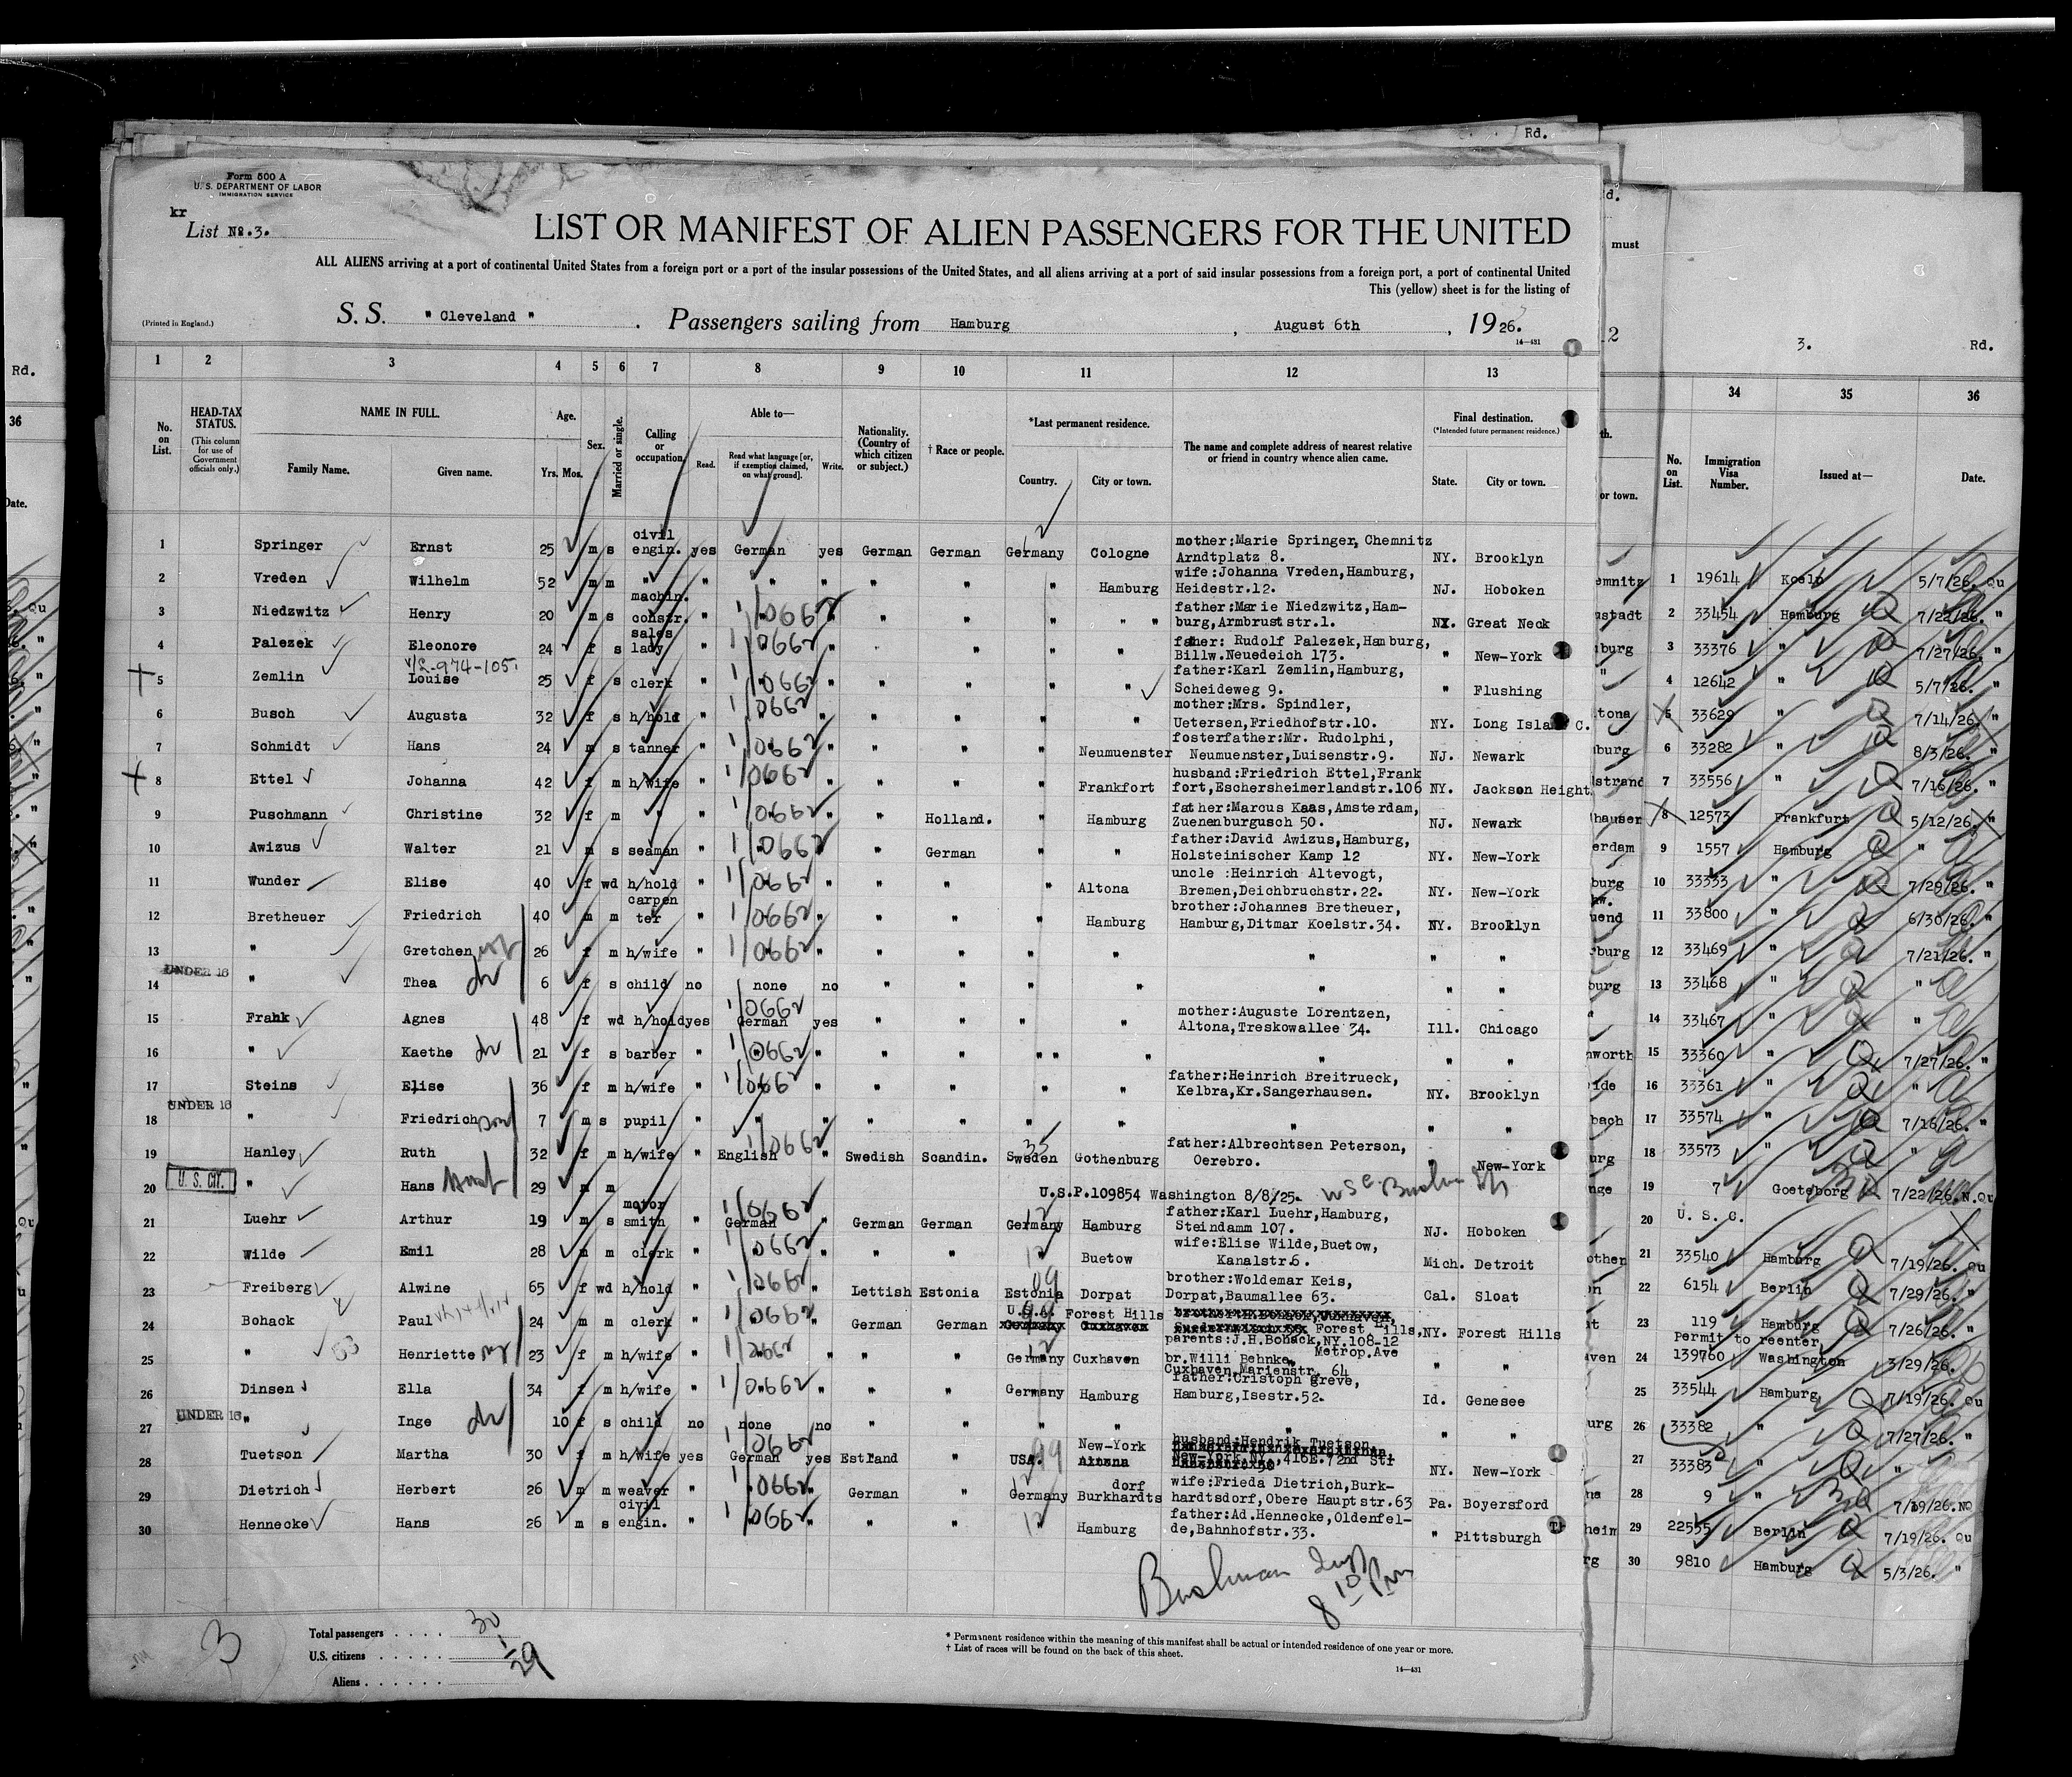 Rd.
Form 500 A
U. S. DEPARTMENT OF LABOR
IMMIGRATION SERVICE
kr
List No. 3.
LIST OR MANIFEST OF ALIEN PASSENGERS FOR THE UNITED
ALL ALIENS arriving at a port of continental United States from a foreign port or a port of the insular possessions of the United States, and all aliens arriving at a port of said insular possessions from a foreign port, a port of continental United
This (yellow) sheet is for the listing of
(Printed in England.)
S. S. " Cleveland " . Passengers sailing from Hamburg , August 6th , 1926.
14—431
1 2 3 4 5 6 7 8 9 10 11 12 13
No. on List.
HEAD-TAX STATUS.
(This column for use of Government officials only.)
NAME IN FULL.
Family Name. Given name.
Age.
Yrs. Mos.
Sex.
Married or single.
Calling or occupation.
Able to—
Read. Read what language [or, if exemption claimed, on what ground]. Write.
Nationality. (Country of which citizen or subject.)
† Race or people.
*Last permanent residence.
Country. City or town.
The name and complete address of nearest relative or friend in country whence alien came.
Final destination.
(*Intended future permanent residence.)
State. City or town.
1 Springer Ernst 25 m s civil engin. yes German yes German German Germany Cologne mother:Marie Springer, Chemnitz Arndtplatz 8. NY. Brooklyn
2 Vreden Wilhelm 52 m m " " " " " " " Hamburg wife:Johanna Vreden,Hamburg, Heidestr.12. NJ. Hoboken
3 Niedzwitz Henry 20 m s machin. constr. " 1/0662 " " " " " " father:Marie Niedzwitz, Ham-burg,Armbruststr.1. NY. Great Neck
4 Palezek Eleonore 24 f s sales lady " 1/0662 " " " " " father: Rudolf Palezek,Hamburg, Billw.Neuedeich 173. " New-York
V/2-974-105.
5 Zemlin Louise 25 f s clerk " 1/0662 " " " " " father:Karl Zemlin,Hamburg, Scheideweg 9. " Flushing
6 Busch Augusta 32 f s h/hold " 1/0662 " " " " " mother:Mrs. Spindler, Uetersen,Friedhofstr.10. NY. Long Island C.
7 Schmidt Hans 24 m s tanner " 1/0662 " " " " Neumuenster fosterfather:Mr. Rudolphi, Neumuenster,Luisenstr.9. NJ. Newark
8 Ettel Johanna 42 f m h/wife " 1/0662 " " " " Frankfort husband:Friedrich Ettel,Frank fort,Eschersheimerlandstr.106 NY. Jackson Height
9 Puschmann Christine 32 f m " " 1/0662 " " Holland. " Hamburg father:Marcus Kaas,Amsterdam, Zuenenburgusch 50. NJ. Newark
10 Awizus Walter 21 m s seaman " 1/0662 " " German " " father:David Awizus,Hamburg, Holsteinischer Kamp 12 NY. New-York
11 Wunder Elise 40 f wd h/hold " 1/0662 " " " " Altona uncle :Heinrich Altevogt, Bremen,Deichbruchstr.22. NY. New-York
12 Bretheuer Friedrich 40 m m carpen ter " 1/0662 " " " " Hamburg brother:Johannes Bretheuer, Hamburg,Ditmar Koelstr.34. NY. Brooklyn
13 " Gretchen 26 f m h/wife " 1/0662 " " " " " " " "
UNDER 16
14 " Thea 6 f s child no none no " " " " " " "
15 Frank Agnes 48 f wd h/hold yes 1/0662 German yes " " " " mother:Auguste Lorentzen, Altona,Treskowallee 34. Ill. Chicago
16 " Kaethe 21 f s barber " 1/0662 " " " " " " " "
17 Steins Elise 36 f m h/wife " 1/0662 " " " " " father:Heinrich Breitrueck, Kelbra,Kr.Sangerhausen. NY. Brooklyn
UNDER 16
18 " Friedrich son 7 m s pupil " " " " " " " " " "
19 Hanley Ruth 32 f m h/wife " 1/0662 English " Swedish Scandin. Sweden Gothenburg father:Albrechtsen Peterson, Oerebro. " New-York
U. S. CIT.
20 " Hans 29 m m U.S.P.109854 Washington 8/8/25. USC
21 Luehr Arthur 19 m s motor smith " 1/0662 German " German German Germany Hamburg father:Karl Luehr,Hamburg, Steindamm 107. NJ. Hoboken
22 Wilde Emil 28 m m clerk " 1/0662 " " " " Buetow wife:Elise Wilde,Buetow, Kanalstr.6. Mich. Detroit
23 Freiberg Alwine 65 f wd h/hold " 1/0662 " Lettish Estonia Estonia Dorpat brother:Woldemar Keis, Dorpat,Baumallee 63. Cal. Sloat
24 Bohack Paul 24 m m clerk " 1/0662 " German German U.S.A. Forest Hills parents:J.H.Bohack,NY.108-12 Metrop.Ave Forest Hills, NY. Forest Hills
25 " Henriette 23 f m h/wife " 1/0662 " " " Germany Cuxhaven br.Willi Behnke, Cuxhaven,Marienstr. 64 " "
26 Dinsen Ella 34 f m h/wife " 1/0662 " " " Germany Hamburg father:Cristoph greve, Hamburg,Isestr.52. Id. Genesee
UNDER 16
27 " Inge 10 f s child no none no " " " " " " "
28 Tuetson Martha 30 f m h/wife yes 1/0662 German yes Estland " USA. New-York husband:Hendrik Tuetson, New-York,NY.,416E.72nd Str NY. New-York
29 Dietrich Herbert 26 m m weaver " 1/0662 " German " Germany Burkhardts dorf wife:Frieda Dietrich,Burk-hardtsdorf,Obere Hauptstr.63 Pa. Boyersford
30 Hennecke Hans 26 m s civil engin. " 1/0662 " " " " Hamburg father:Ad.Hennecke,Oldenfel-de,Bahnhofstr.33. " Pittsburgh
Bushman Insp
8 10 Pm
3
Total passengers . . . . . 30
U.S. citizens . . . . . 1
Aliens . . . . . . 29
* Permanent residence within the meaning of this manifest shall be actual or intended residence of one year or more.
† List of races will be found on the back of this sheet.
14—431
Rd.
36
Date.
d.
must
3. Rd.
34 35 36
No. on List. Immigration Visa Number. Issued at— Date.
or town.
1 19614 Koeln 5/7/26. Qu
2 33454 Hamburg 7/22/26. "
3 33376 " 7/27/26. "
4 12642 " 5/7/26. "
5 33629 " 7/14/26. "
6 33282 " 8/3/26. "
7 33556 " 7/16/26. "
8 12573 Frankfurt 5/12/26. "
9 1557 Hamburg "
10 33333 " 7/29/26. "
11 33800 " 6/30/26. "
12 33469 " 7/21/26. "
13 33468 " "
14 33467 " "
15 33360 " 7/27/26. "
16 33361 " "
17 33574 " 7/16/26. "
18 33573 " "
19 7 Goeteborg 7/22/26. N.Qu
20 U. S. C.
21 33540 Hamburg 7/19/26. Qu
22 6154 Berlin 7/29/26. "
23 119 Hamburg 7/26/26. "
Permit to reenter,
24 139760 Washington 3/29/26.
25 33544 Hamburg 7/19/26. Qu
26 33382 " 7/27/26. "
27 33383 " "
28 9 " 7/19/26. NQ
29 22555 Berlin 7/19/26. Qu
30 9810 Hamburg 5/3/26. "